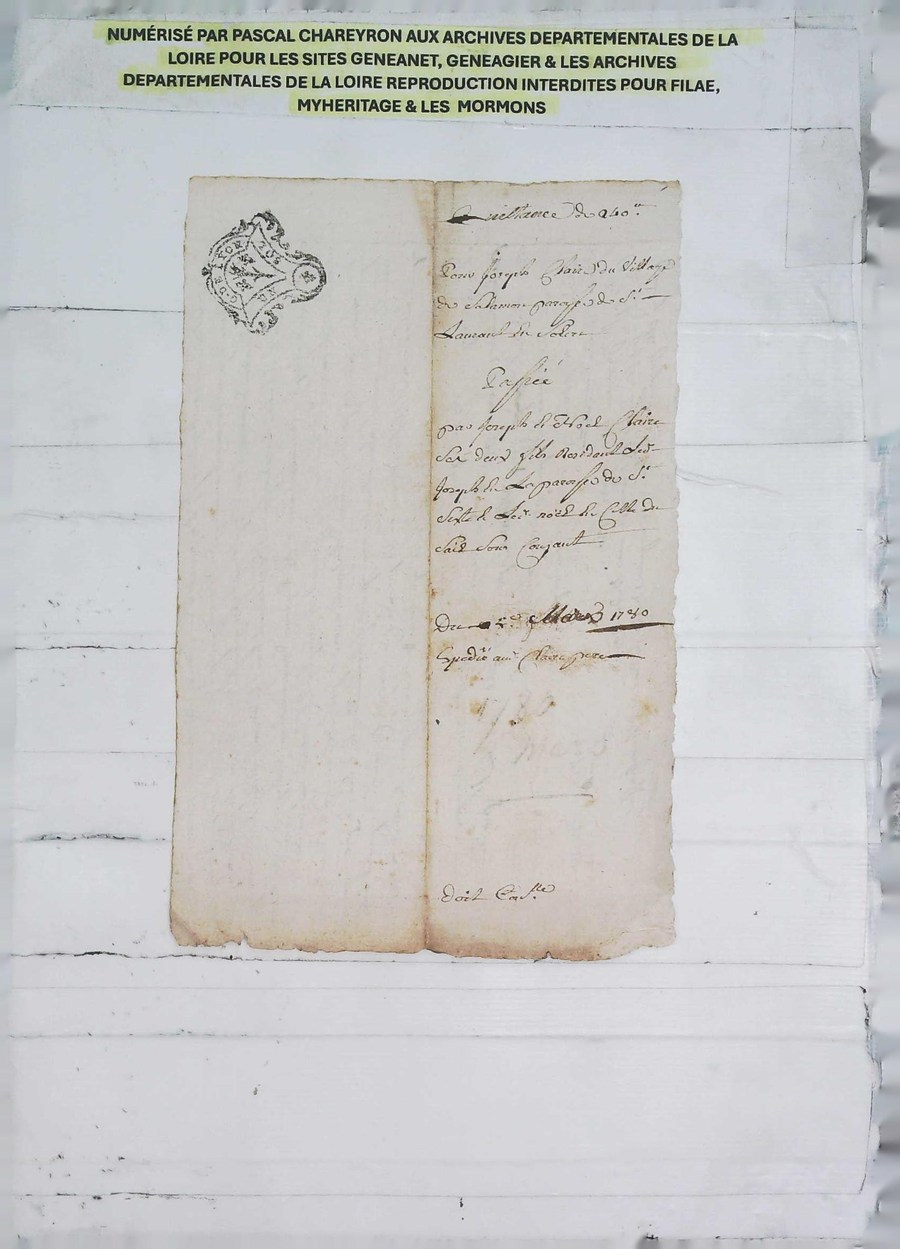 NUMÉRISÉ PAR PASCAL CHAREYRON AUX ARCHIVES DEPARTEMENTALES DE LA
LOIRE POUR LES SITES GENEANET, GENEAGIER & LES ARCHIVES
DEPARTEMENTALES DE LA LOIRE REPRODUCTION INTERDITES POUR FILAE,
MYHERITAGE & LES MORMONS
G. DE LYON
Quittance de 240ᵗᵗ
Pour Joseph Claire du Village
de paroisse de Sᵗ
Laurant
Passée
par Joseph et Noel Claire
Ses deux fils Residant Led
Joseph en La paroisse de Sᵗ
Sixte et Led noel en Celle de
Sail Sous Couzant
Du Mars 1780
Spedié au Claire pere
1780
Mars
doit